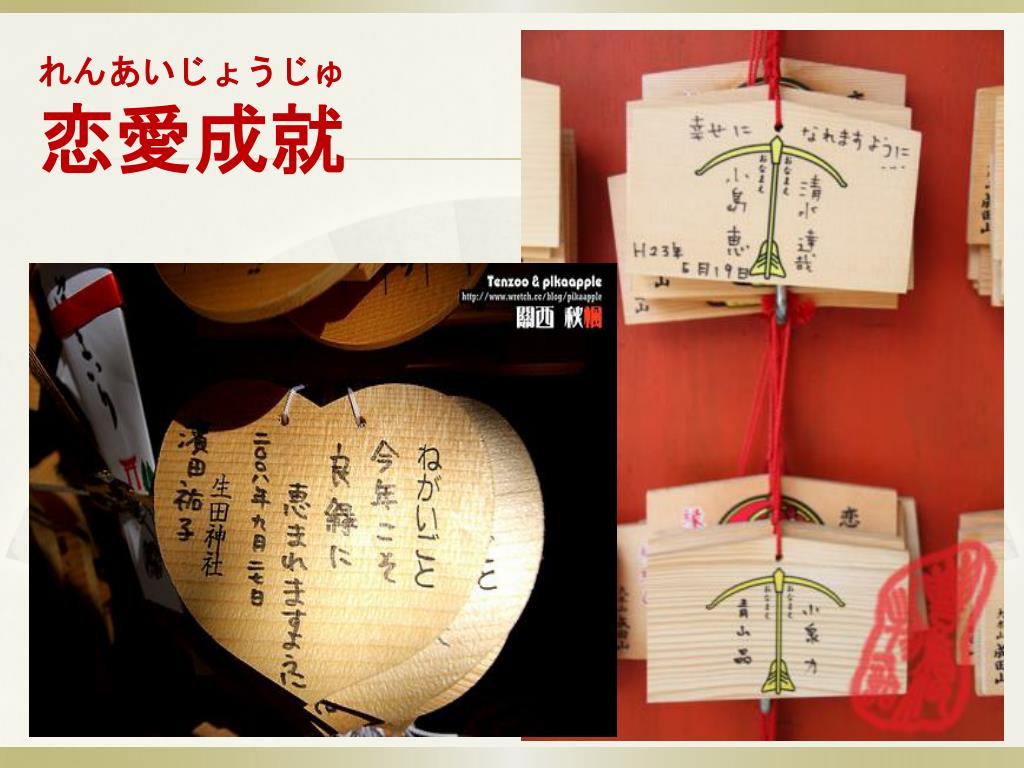 れんあいじょうじゅ
恋愛成就
Tenzoo & pikaapple
http://www.wretch.cc/blog/pikaapple
關西 秋楓
ねがいごと
今年こそ
良縁に
恵まれますように
二〇〇八年 九月 二七日
生田神社
濱田祐子
幸せに なれますように
おなまえ
おなまえ
清水 達哉
小島 恵
H23年
6月19日
恋
おなまえ
おなまえ
小泉 力
青山 品
成田山